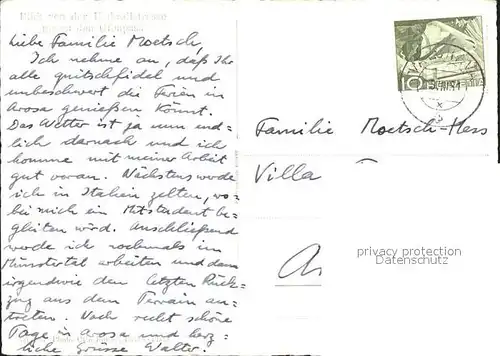 Blick von der Hochwaldstrasse
Liebe Familie Moetsch,
Ich nehme an, daß Ihr
alle quitschfidel und
unbeschwert die Ferien in
Arosa genießen könnt.
Das Wetter ist ja nun end=
lich darnach und ich
komme mit meiner Arbeit
gut voran. Nächstens werde
ich in Italien zelten, wo=
bei mich ein Mitstudent be=
gleiten wird. Anschließend
werde ich nochmals im
Münstertal arbeiten und dann
irgendwie den letzten Rück=
zug aus dem Terrain an=
treten. Noch recht schöne
Tage in Arosa und herz=
liche Grüsse Walter.
10
Familie Moetsch-Hess
Villa
Ar
privacy protection
Datenschutz